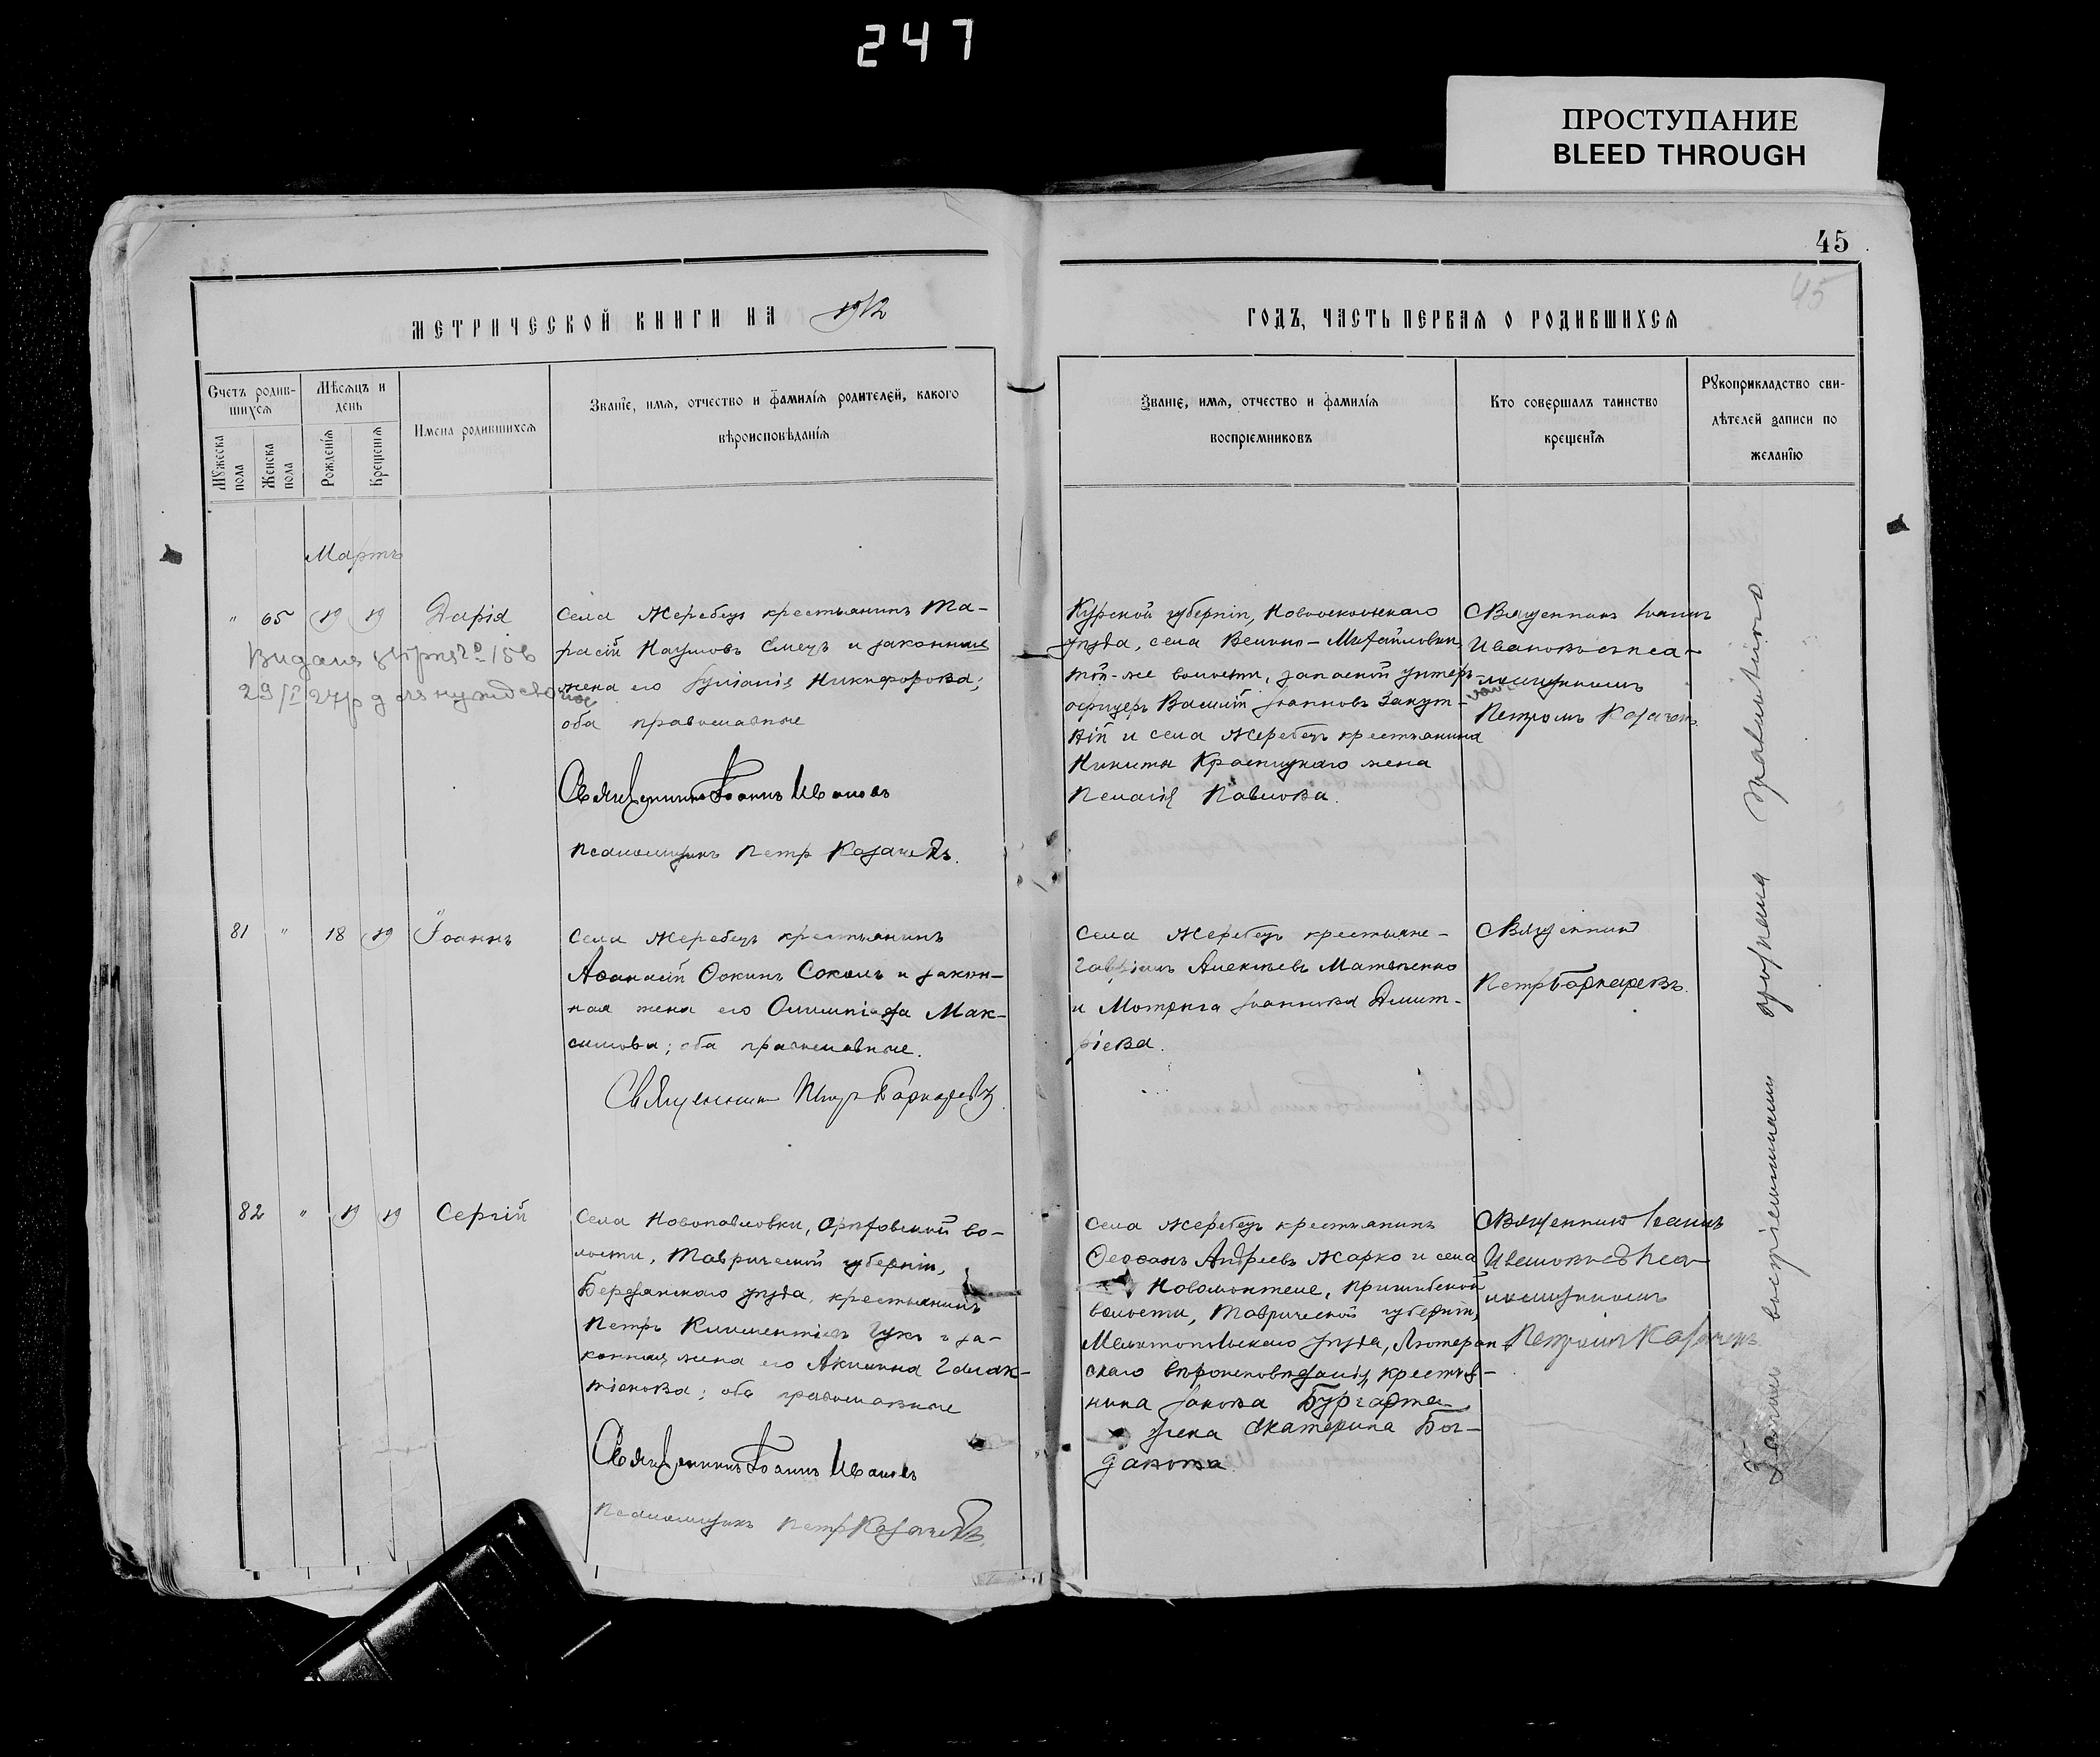 247
ПРОСТУПАНИЕ
BLEED THROUGH
45
45
МЕТРИЧЕСКОЙ КНИГИ НА 1912
ГОДЪ, ЧАСТЬ ПЕРВАЯ О РОДИВШИХСЯ
Счетъ родив-
шихся
Мужеска пола
Женска пола
Мѣсяцъ и
день
Рожденія
Крещенія
Имена родившихся
Званіе, имя, отчество и фамилія родителей, какого
вѣроисповѣданія
Званіе, имя, отчество и фамилія
воспріемниковъ
Кто совершалъ таинство
крещенія
Рукоприкладство сви-
дѣтелей записи по
желанію
Мартъ
" 65 19 19 Дарія
Села Жеребецъ крестьянинъ Та-
расій Наумовъ Смецъ и законная
жена его Іуліанія Никифорова;
оба православные
Священникъ Іоаннъ Ивановъ
Псаломщикъ Петр Козачекъ.
Курской губерніи, Новооскольскаго
уѣзда, села Велико-Михайловки,
той-же волости, запасной унтеръ-
офицеръ Василій Іоанновъ Закут-
ній и села Жеребецъ крестьянина
Никиты Красницкаго жена
Пелагія Павлова.
Священникъ Іоаннъ
Ивановъ съ пса-
ломщикомъ
Петромъ Козачекъ
81 " 18 19 Іоаннъ
Села Жеребецъ крестьянинъ
Аѳанасій Ѳокинъ Соколъ и закон-
ная жена его Олимпіада Мак-
симова; оба православные.
Священникъ Петръ Борнаревъ
Села Жеребецъ крестьяне-
Гавріилъ Алексѣевъ Матвѣенко
и Мотрона Іоаннова Димит-
ріева.
Священникъ
Петръ Борнаревъ.
82 " 19 19 Сергій
Села Новопавловки, Орѣховской во-
лости, Таврической губерніи,
Бердянскаго уѣзда, крестьянинъ
Петръ Климентіевъ Гукъ и за-
конная жена его Акилина Галак-
тіонова; оба православные
Священникъ Іоаннъ Ивановъ
Псаломщикъ Петр Козачекъ.
Села Жеребецъ крестьянинъ
Ѳеофанъ Андреевъ Жарко и села
Новомонтале, Пришибской
волости, Таврической губерніи,
Мелитопольскаго уѣзда, Лютеран-
скаго вѣроисповѣданія, крестья-
нина Іакова Бургарта
жена Екатерина Бог-
данова
Священникъ Іоаннъ
Ивановъ съ пса-
ломщикомъ
Петромъ Козачекъ
Запись воспріемниками урожена правильно